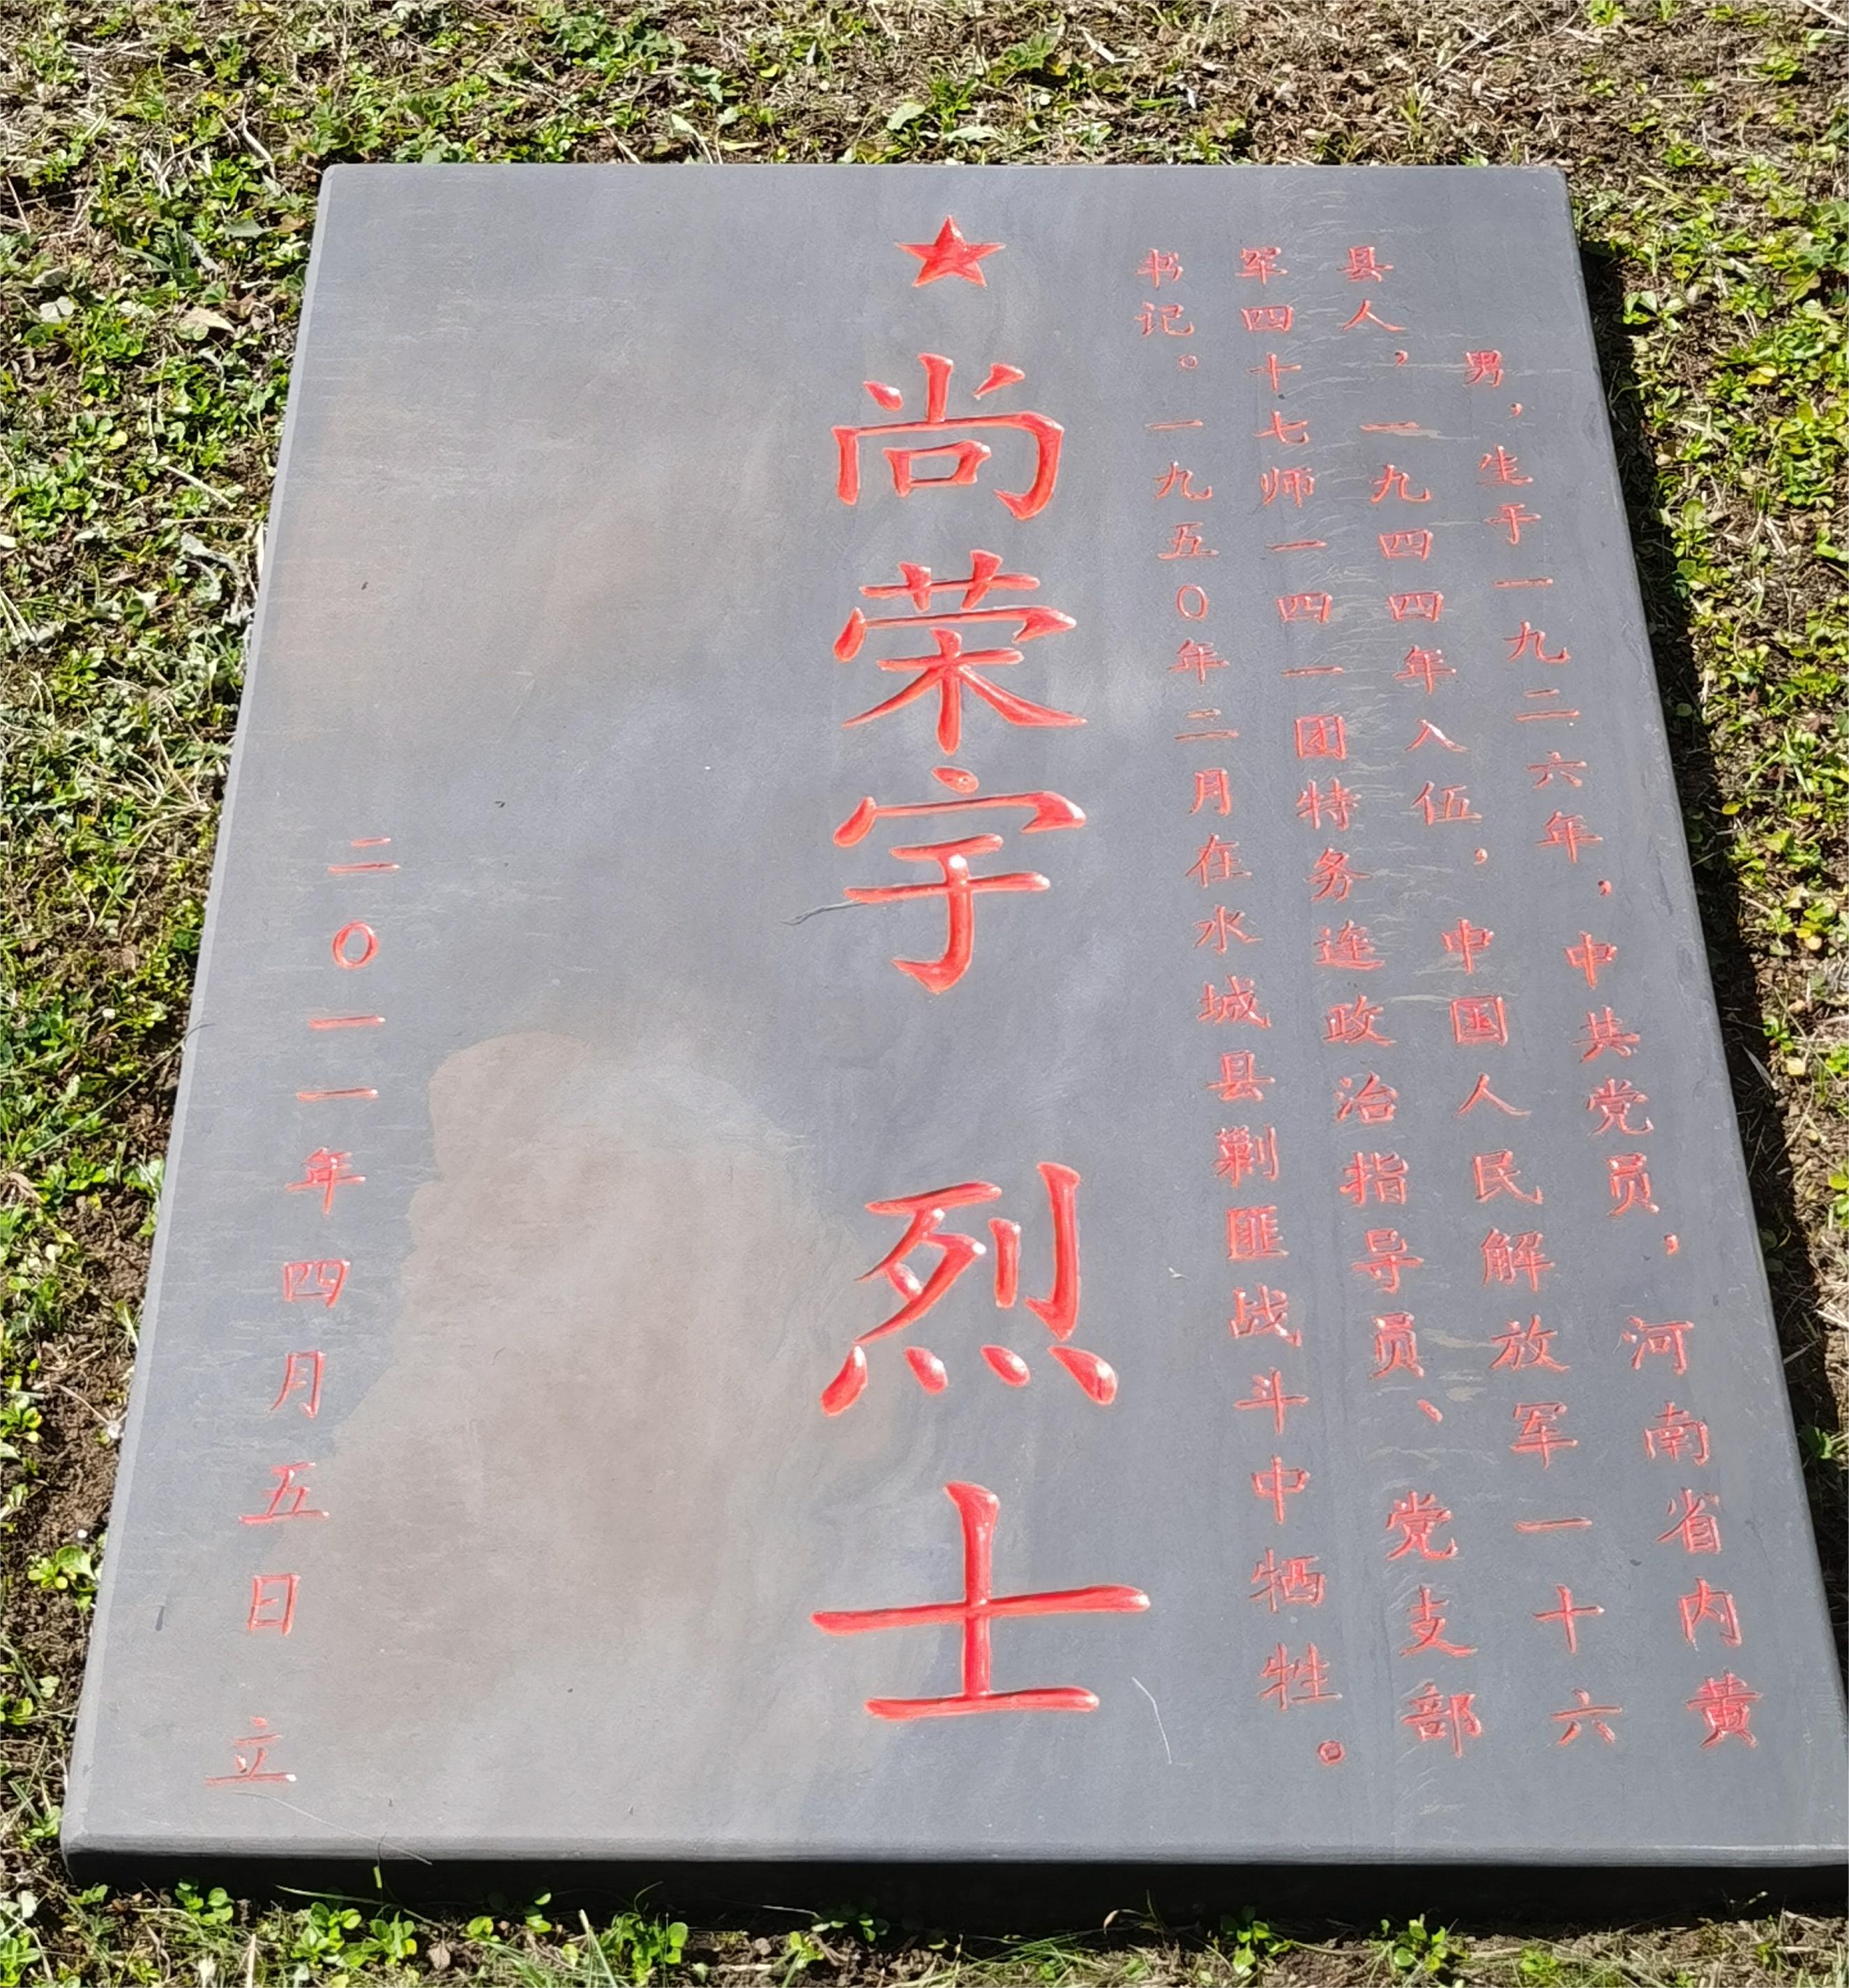 男，生于一九二六年，中共党员，河南省内黄
县人，一九四四年入伍，中国人民解放军一十六
军四十七师一四一团特务连政治指导员、党支部
书记。一九五〇年二月在水城县剿匪战斗中牺牲。
尚荣宇 烈士
二〇一一年四月五日 立